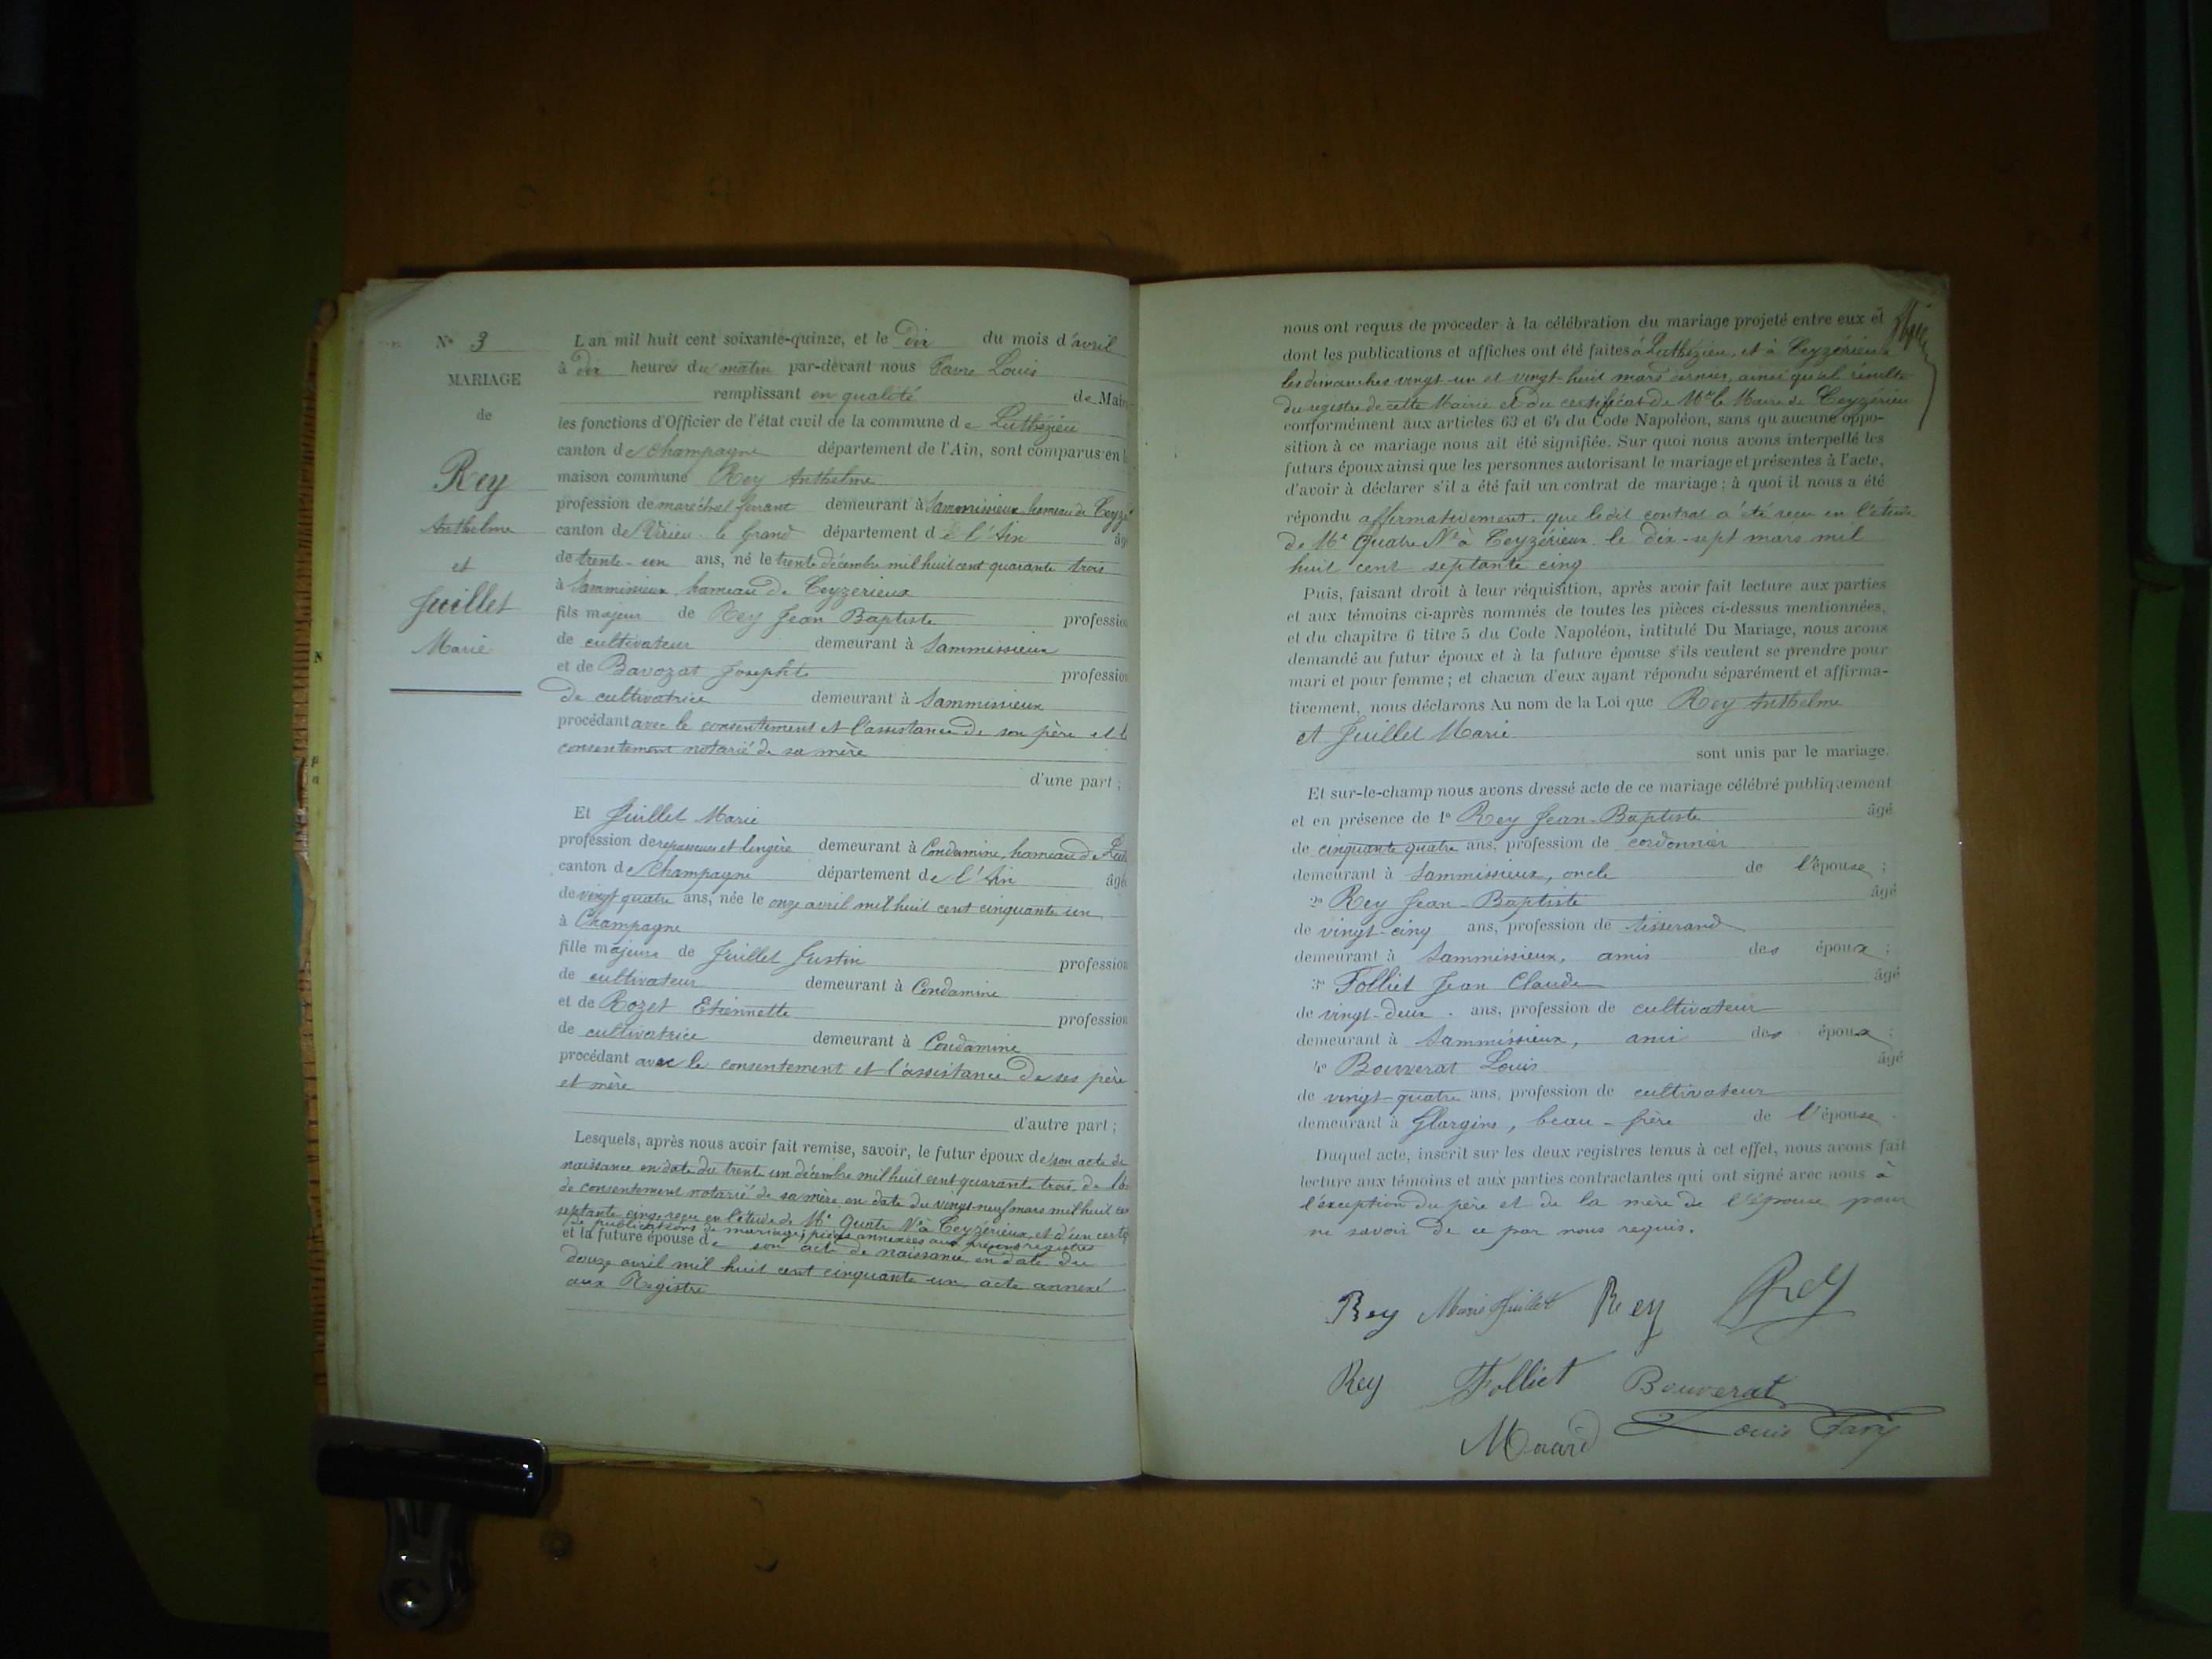 N° 3
MARIAGE
de
Rey
Anthelme
et
Juillet
Marie
L'an mil huit cent soixante-quinze, et le dix du mois d'avril
à dix heures du matin par-devant nous Favre Louis
remplissant en qualité de Mai
les fonctions d'Officier de l'état civil de la commune de Luthézieu
canton de Champagne département de l'Ain, sont comparus en l
maison commune Rey Anthelme
profession de maréchal ferrant demeurant à Sammissieux hameau de Ceyzé
canton de Virieu le Grand département de l'Ain âg
de trente-un ans, né le trente décembre mil huit cent quarante trois
à Sammissieux, hameau de Ceyzérieux
fils majeur de Rey Jean Baptiste profession
de cultivateur demeurant à Sammissieux
et de Bavozat Josephte profession
de cultivatrice demeurant à Sammissieux
procédant avec le consentement et l'assistance de son père et l
consentement notarié de sa mère
d'une part ;
Et Juillet Marie
profession de repasseuse et lingère demeurant à Condamine, hameau de Lut
canton de Champagne département de l'Ain âgé
de vingt quatre ans, née le onze avril mil huit cent cinquante un
à Champagne
fille majeure de Juillet Justin profession
de cultivateur demeurant à Condamine
et de Rozet Etiennette profession
de cultivatrice demeurant à Condamine
procédant avec le consentement et l'assistance de ses père
et mère
d'autre part ;
Lesquels, après nous avoir fait remise, savoir, le futur époux de son acte de
naissance en date du trente un décembre mil huit cent quarante trois, de
de consentement notarié de sa mère en date du vingt-neuf mars mil huit cen
septante cinq, reçu en l'étude de Me Quatre Nre à Ceyzérieux, et d'un certif
de publications de mariage, pièces annexées aux présents registres
et la future épouse de son acte de naissance en date du
douze avril mil huit cent cinquante un acte annexé
aux Registre
nous ont requis de procéder à la célébration du mariage projeté entre eux et
dont les publications et affiches ont été faites à Luthézieu, et à Ceyzérieux
les dimanches vingt-un et vingt-huit mars dernier, ainsi qu'il résulte
du registre de cette Mairie et du certificat de Mr le Maire de Ceyzérieu
conformément aux articles 63 et 64 du Code Napoléon, sans qu'aucune oppo-
sition à ce mariage nous ait été signifiée. Sur quoi nous avons interpellé les
futurs époux ainsi que les personnes autorisant le mariage et présentes à l'acte,
d'avoir à déclarer s'il a été fait un contrat de mariage ; à quoi il nous a été
répondu affirmativement. que ledit contrat a été reçu en l'étude
de Me Quatre Nre à Ceyzérieux le dix-sept mars mil
huit cent septante cinq
Puis, faisant droit à leur réquisition, après avoir fait lecture aux parties
et aux témoins ci-après nommés de toutes les pièces ci-dessus mentionnées,
et du chapitre 6 titre 5 du Code Napoléon, intitulé Du Mariage, nous avons
demandé au futur époux et à la future épouse s'ils veulent se prendre pour
mari et pour femme ; et chacun d'eux ayant répondu séparément et affirma-
tivement, nous déclarons Au nom de la Loi que Rey Anthelme
et Juillet Marie
sont unis par le mariage.
Et sur-le-champ nous avons dressé acte de ce mariage célébré publiquement
et en présence de 1° Rey Jean-Baptiste âgé
de cinquante quatre ans, profession de cordonnier
demeurant à Sammissieux, oncle de l'épouse ;
2° Rey Jean-Baptiste âgé
de vingt-cinq ans, profession de tisserand
demeurant à Sammissieux, amis des époux ;
3° Folliet Jean Claude âgé
de vingt-deux ans, profession de cultivateur
demeurant à Sammissieux, ami des époux ;
4° Bouverat Louis âgé
de vingt quatre ans, profession de cultivateur
demeurant à Glargins, beau-frère de l'épouse
Duquel acte, inscrit sur les deux registres tenus à cet effet, nous avons fait
lecture aux témoins et aux parties contractantes qui ont signé avec nous à
l'exception du père et de la mère de l'épouse pour
ne savoir de ce par nous requis.
Rey Marie Juillet Rey Rey
Rey Folliet Bouverat
Louis